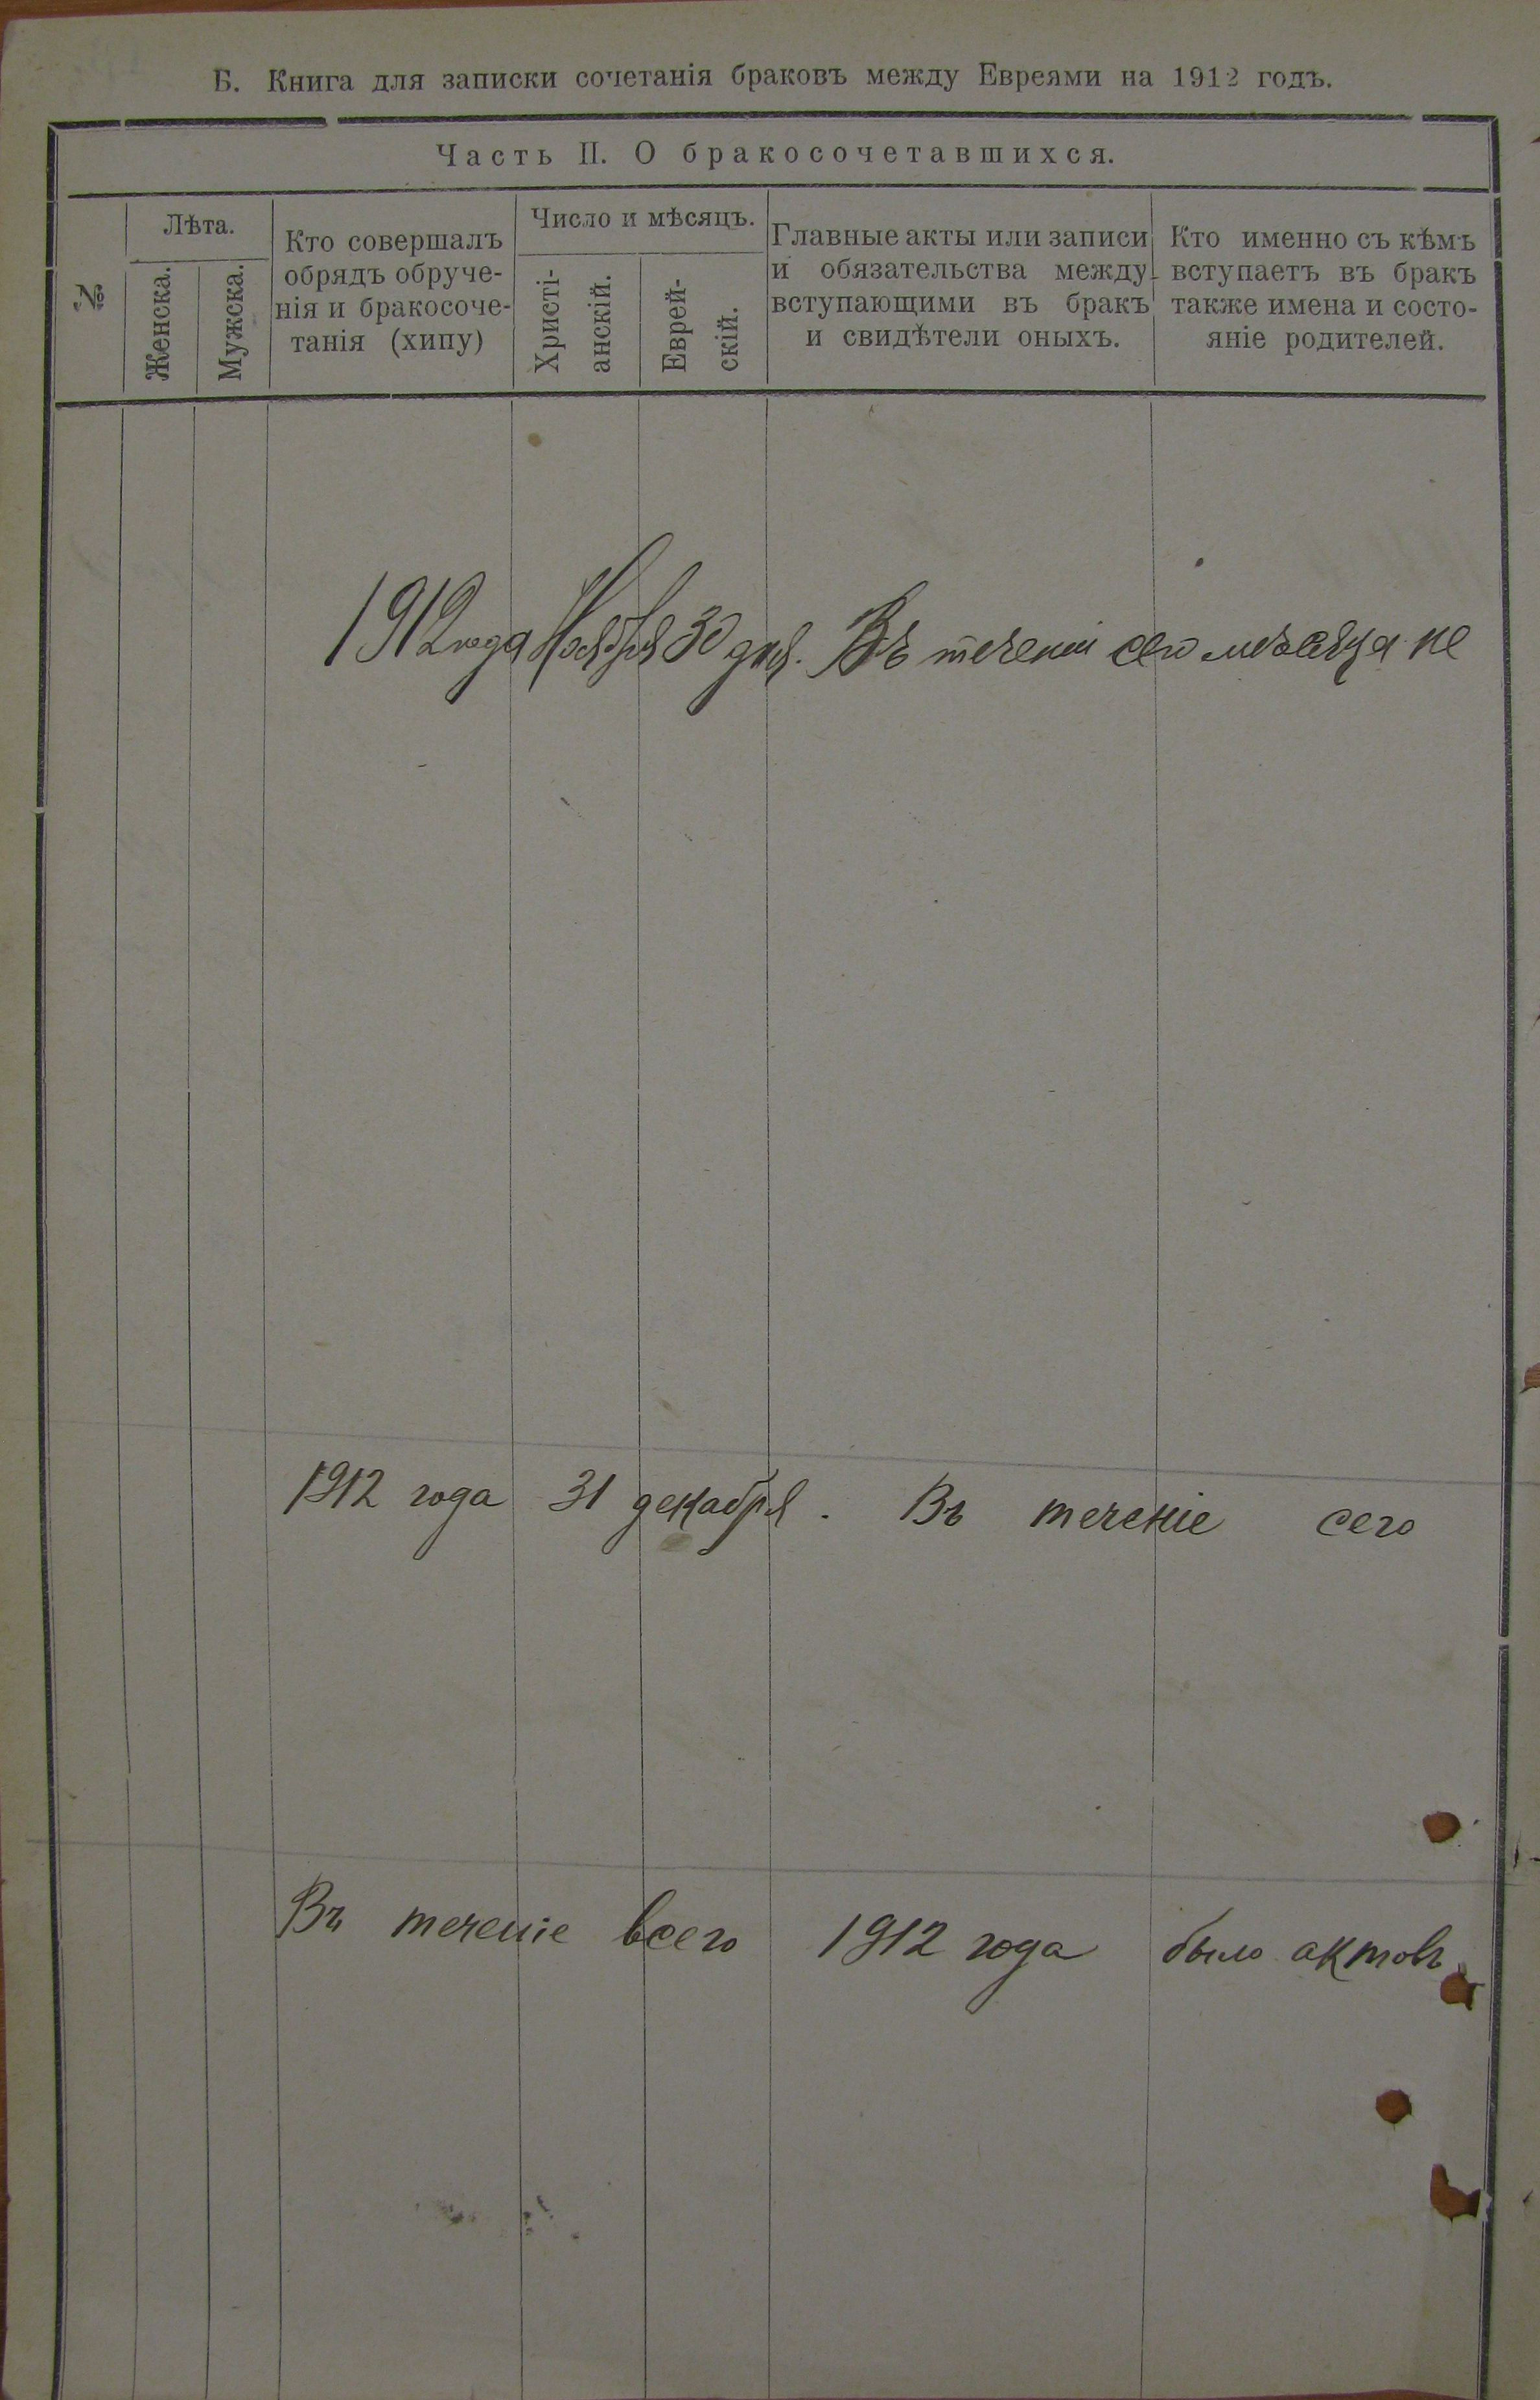 Б. Книга для записки сочетанія браковъ между Евреями на 1912 годъ.
Часть II. О бракосочетавшихся.
№
Лѣта.
Женска.
Мужска.
Кто совершалъ
обрядъ обруче-
нія и бракосоче-
танія (хипу)
Число и мѣсяцъ.
Христі-
анскій.
Еврей-
скій.
Главные акты или записи
и обязательства между
вступающими въ бракъ
и свидѣтели оныхъ.
Кто именно съ кѣмъ
вступаетъ въ бракъ
также имена и состо-
яніе родителей.
1912 года Ноября 30 дня. Въ теченіи сего мѣсяца не
1912 года 31 декабря. Въ теченіе сего
Въ теченіе всего 1912 года было актовъ